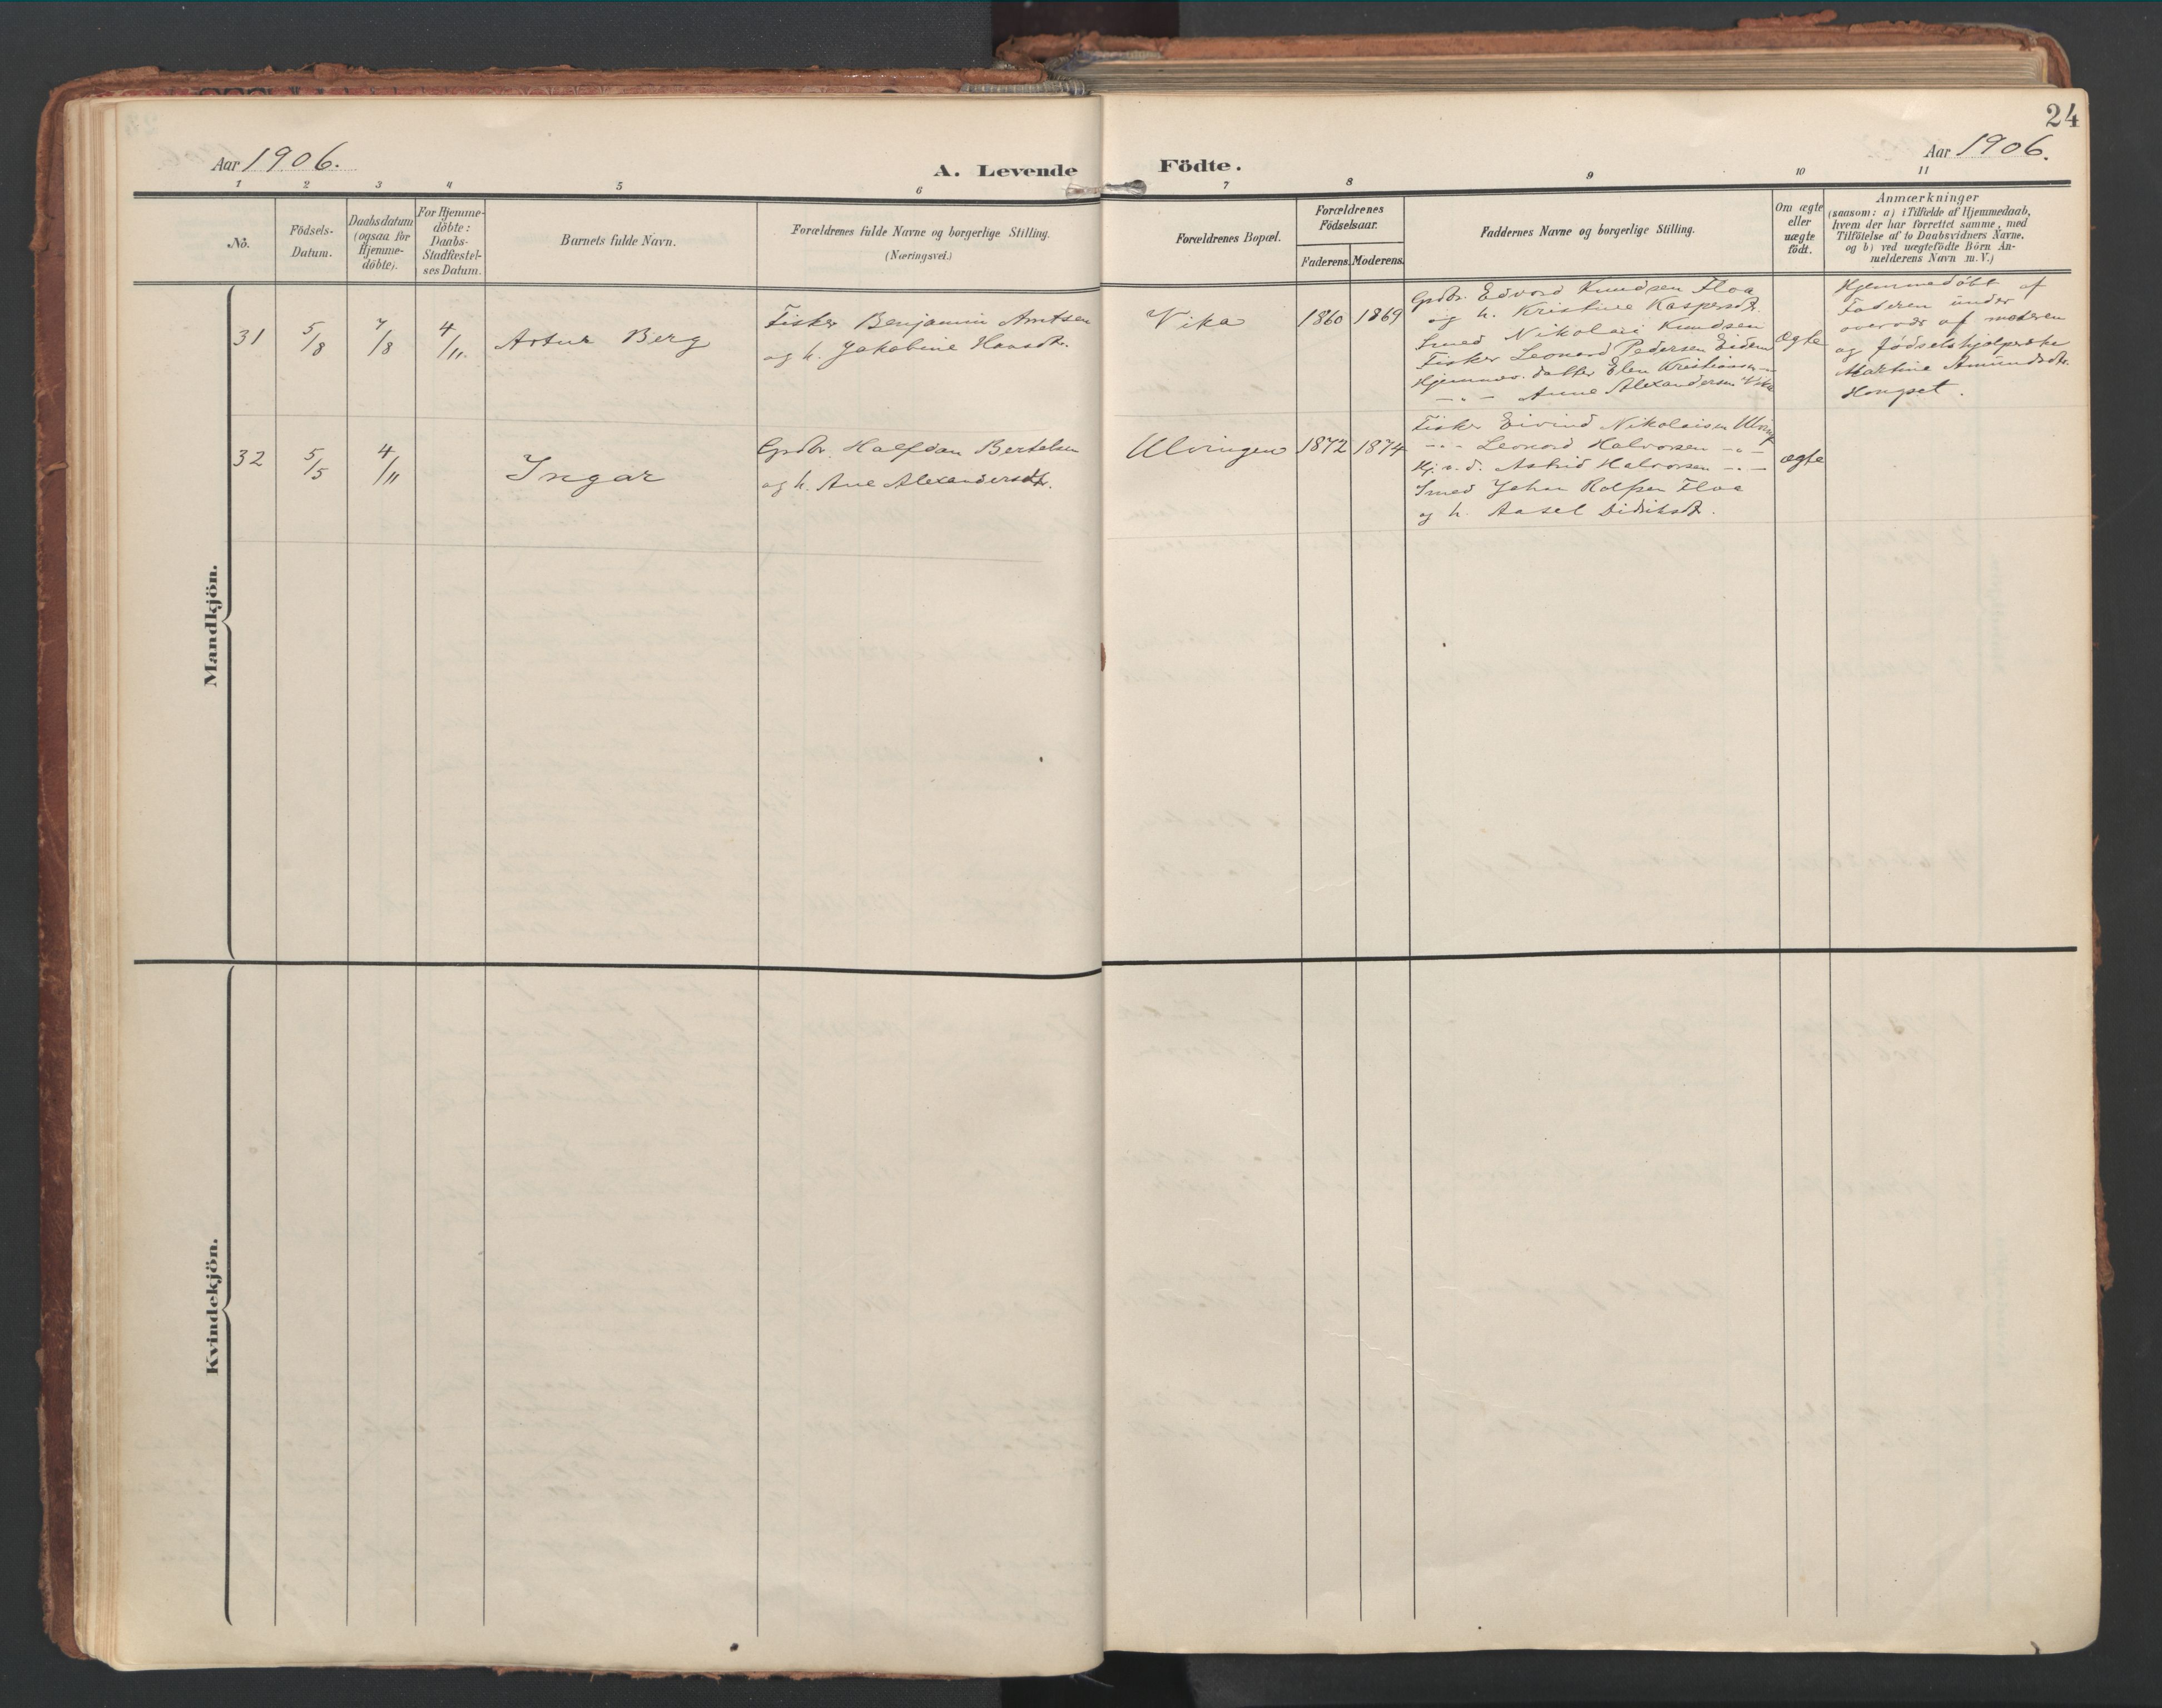 24
Aar 1906.
A. Levende Födte.
Aar 1906.
1 2 3 4 5 6 7 8 9 10 11
No.
Födsels-
Datum.
Daabsdatum
(ogsaa for
Hjemme-
döbte).
For Hjemme-
döbte:
Daabs-
Stadfæstel-
ses Datum.
Barnets fulde Navn.
Forældrenes fulde Navne og borgerlige Stilling.
(Næringsvei.)
Forældrenes Bopæl.
Forældrenes
Födselsaar.
Faderens. Moderens.
Faddernes Navne og borgerlige Stilling.
Om ægte
eller
uægte
födt.
Anmærkninger
(saasom: a) i Tilfælde af Hjemmedaab,
hvem der har forrettet samme, med
Tilföielse af to Daabsvidners Navne.
og b) ved uægtefödte Börn An-
melderens Navn m. V.)
Mandkjön.
31
5/8
7/8
4/11.
Artur Berg
Fisker Benjamin Arntsen
og h. Jakobine Hansdtr.
Vika
1860 1869
Gpdbr. Edvard Knudsen Floa
og h. Kristine Kaspersdtr.
Smed Nikolai Knudsen
Fisker Leonard Pedersen Eidem
Hjemmev. datter Elen Kristiansen
— " — Anne Alexandersen Vika
Ægte
Hjemmedöbt af
Faderen under
overvær af moderen
og födselshjælperske
Martine Amundsdtr.
Hongset.
32
5/5
4/11
Ingar
Gpdbr. Halfdan Bertelsen
og h. Ane Alexandersdtr.
Ulvingen
1872 1874
Fisker Eivind Nikolaisen Ulving
— " — Leonard Halvorsen — " —
Hj. v. d. Astrid Halvorsen — " —
Smed Johan Rolfsen Floa
og h. Aasel Didriksdtr.
ægte
Kvindekjön.